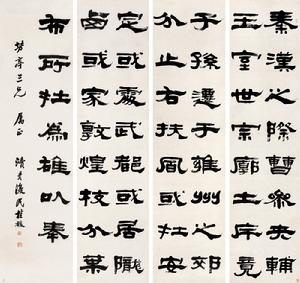 秦漢之際曹參夾輔
王室世宗廓土斥竟
子孫遷于雍州之郊
分止右扶風或在安
定或處武都或居隴
西或家敦煌枝分葉
布所在為雄以奉
三兄 屬正 瀆井復民桂馥